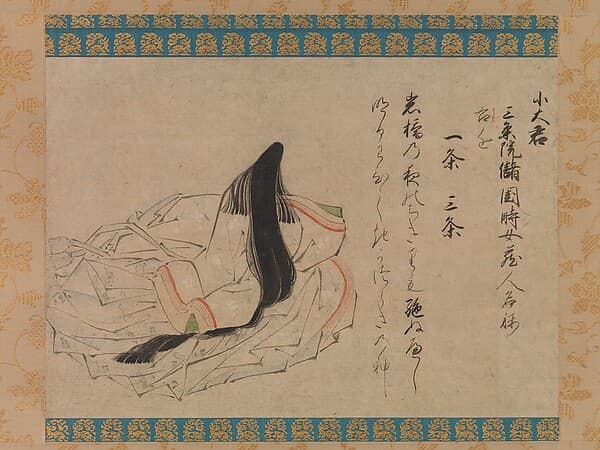 小大君
三条院儲闈時女蔵人名
左近
一条 三条
岩橋乃夜のちきりも絶ぬへし
明るわひしきかつらきの神